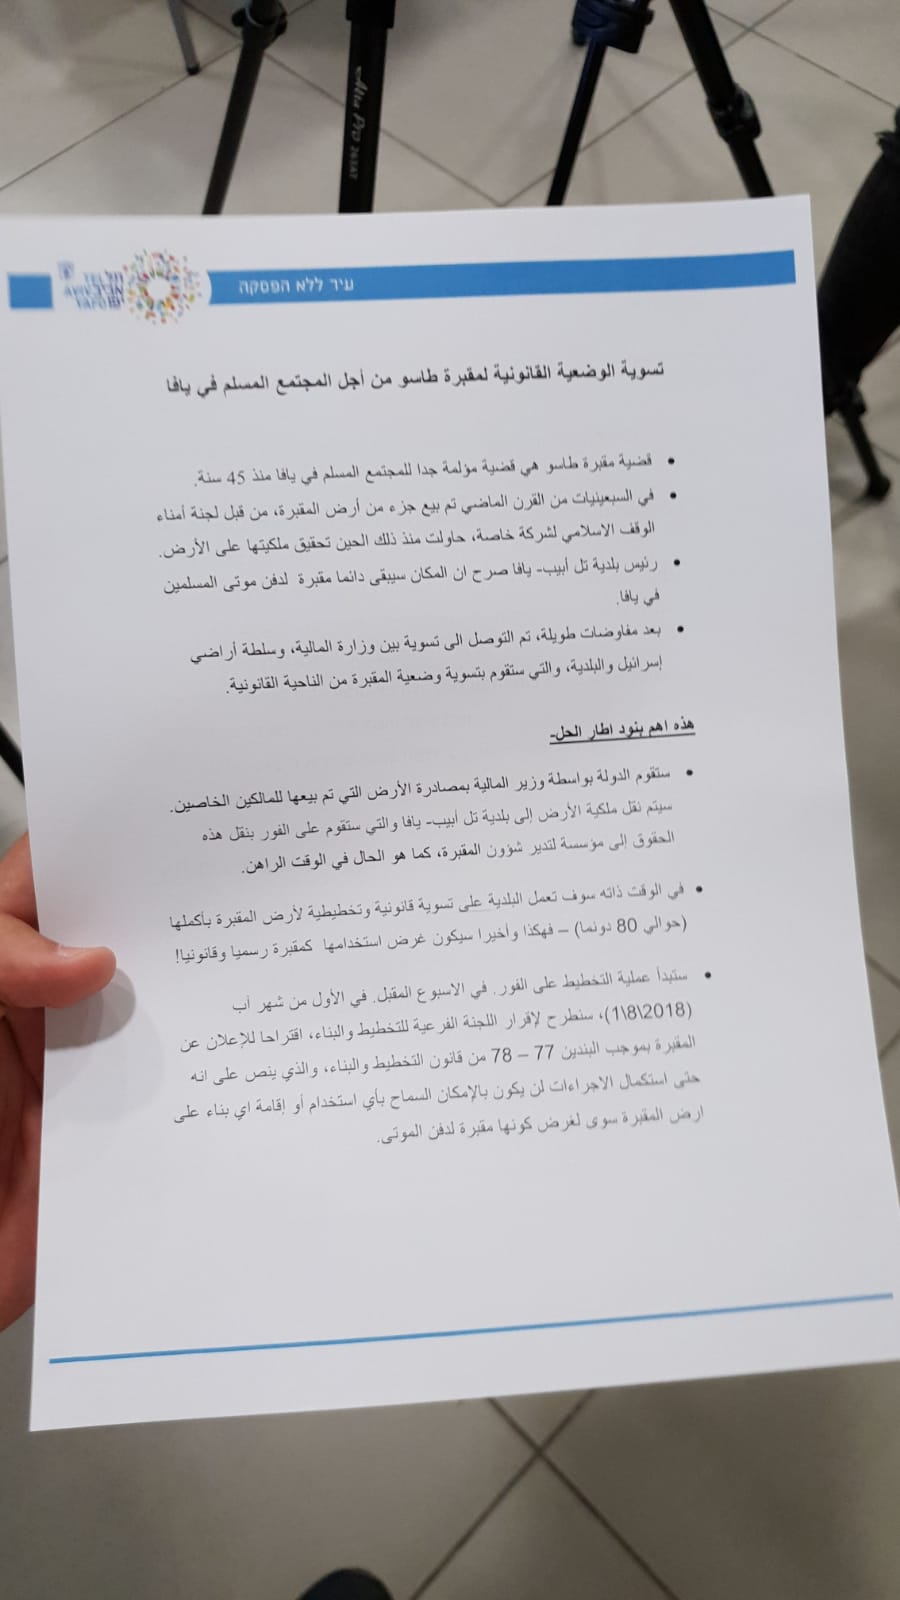 Alta Pro 263AT
תל
אביב
יפו
TEL
AVIV
YAFO
עיר ללא הפסקה
تسوية الوضعية القانونية لمقبرة طاسو من أجل المجتمع المسلم في يافا
• قضية مقبرة طاسو هي قضية مؤلمة جدا للمجتمع المسلم في يافا منذ 45 سنة.
• في السبعينيات من القرن الماضي تم بيع جزء من أرض المقبرة، من قبل لجنة أمناء
الوقف الاسلامي لشركة خاصة، حاولت منذ ذلك الحين تحقيق ملكيتها على الأرض.
• رئيس بلدية تل أبيب- يافا صرح ان المكان سيبقى دائما مقبرة لدفن موتى المسلمين
في يافا.
• بعد مفاوضات طويلة، تم التوصل الى تسوية بين وزارة المالية، وسلطة أراضي
إسرائيل والبلدية، والتي ستقوم بتسوية وضعية المقبرة من الناحية القانونية.
هذه اهم بنود اطار الحل-
• ستقوم الدولة بواسطة وزير المالية بمصادرة الأرض التي تم بيعها للمالكين الخاصين.
سيتم نقل ملكية الأرض إلى بلدية تل أبيب- يافا والتي ستقوم على الفور بنقل هذه
الحقوق إلى مؤسسة لتدير شؤون المقبرة، كما هو الحال في الوقت الراهن.
• في الوقت ذاته سوف تعمل البلدية على تسوية قانونية وتخطيطية لأرض المقبرة بأكملها
(حوالي 80 دونما) – فهكذا وأخيرا سيكون غرض استخدامها كمقبرة رسميا وقانونيا!
• ستبدأ عملية التخطيط على الفور. في الاسبوع المقبل. في الأول من شهر آب
(1\8\2018)، سنطرح لإقرار اللجنة الفرعية للتخطيط والبناء، اقتراحا للإعلان عن
المقبرة بموجب البندين 77 – 78 من قانون التخطيط والبناء، والذي ينص على انه
حتى استكمال الاجراءات لن يكون بالإمكان السماح بأي استخدام أو إقامة اي بناء على
ارض المقبرة سوى لغرض كونها مقبرة لدفن الموتى.